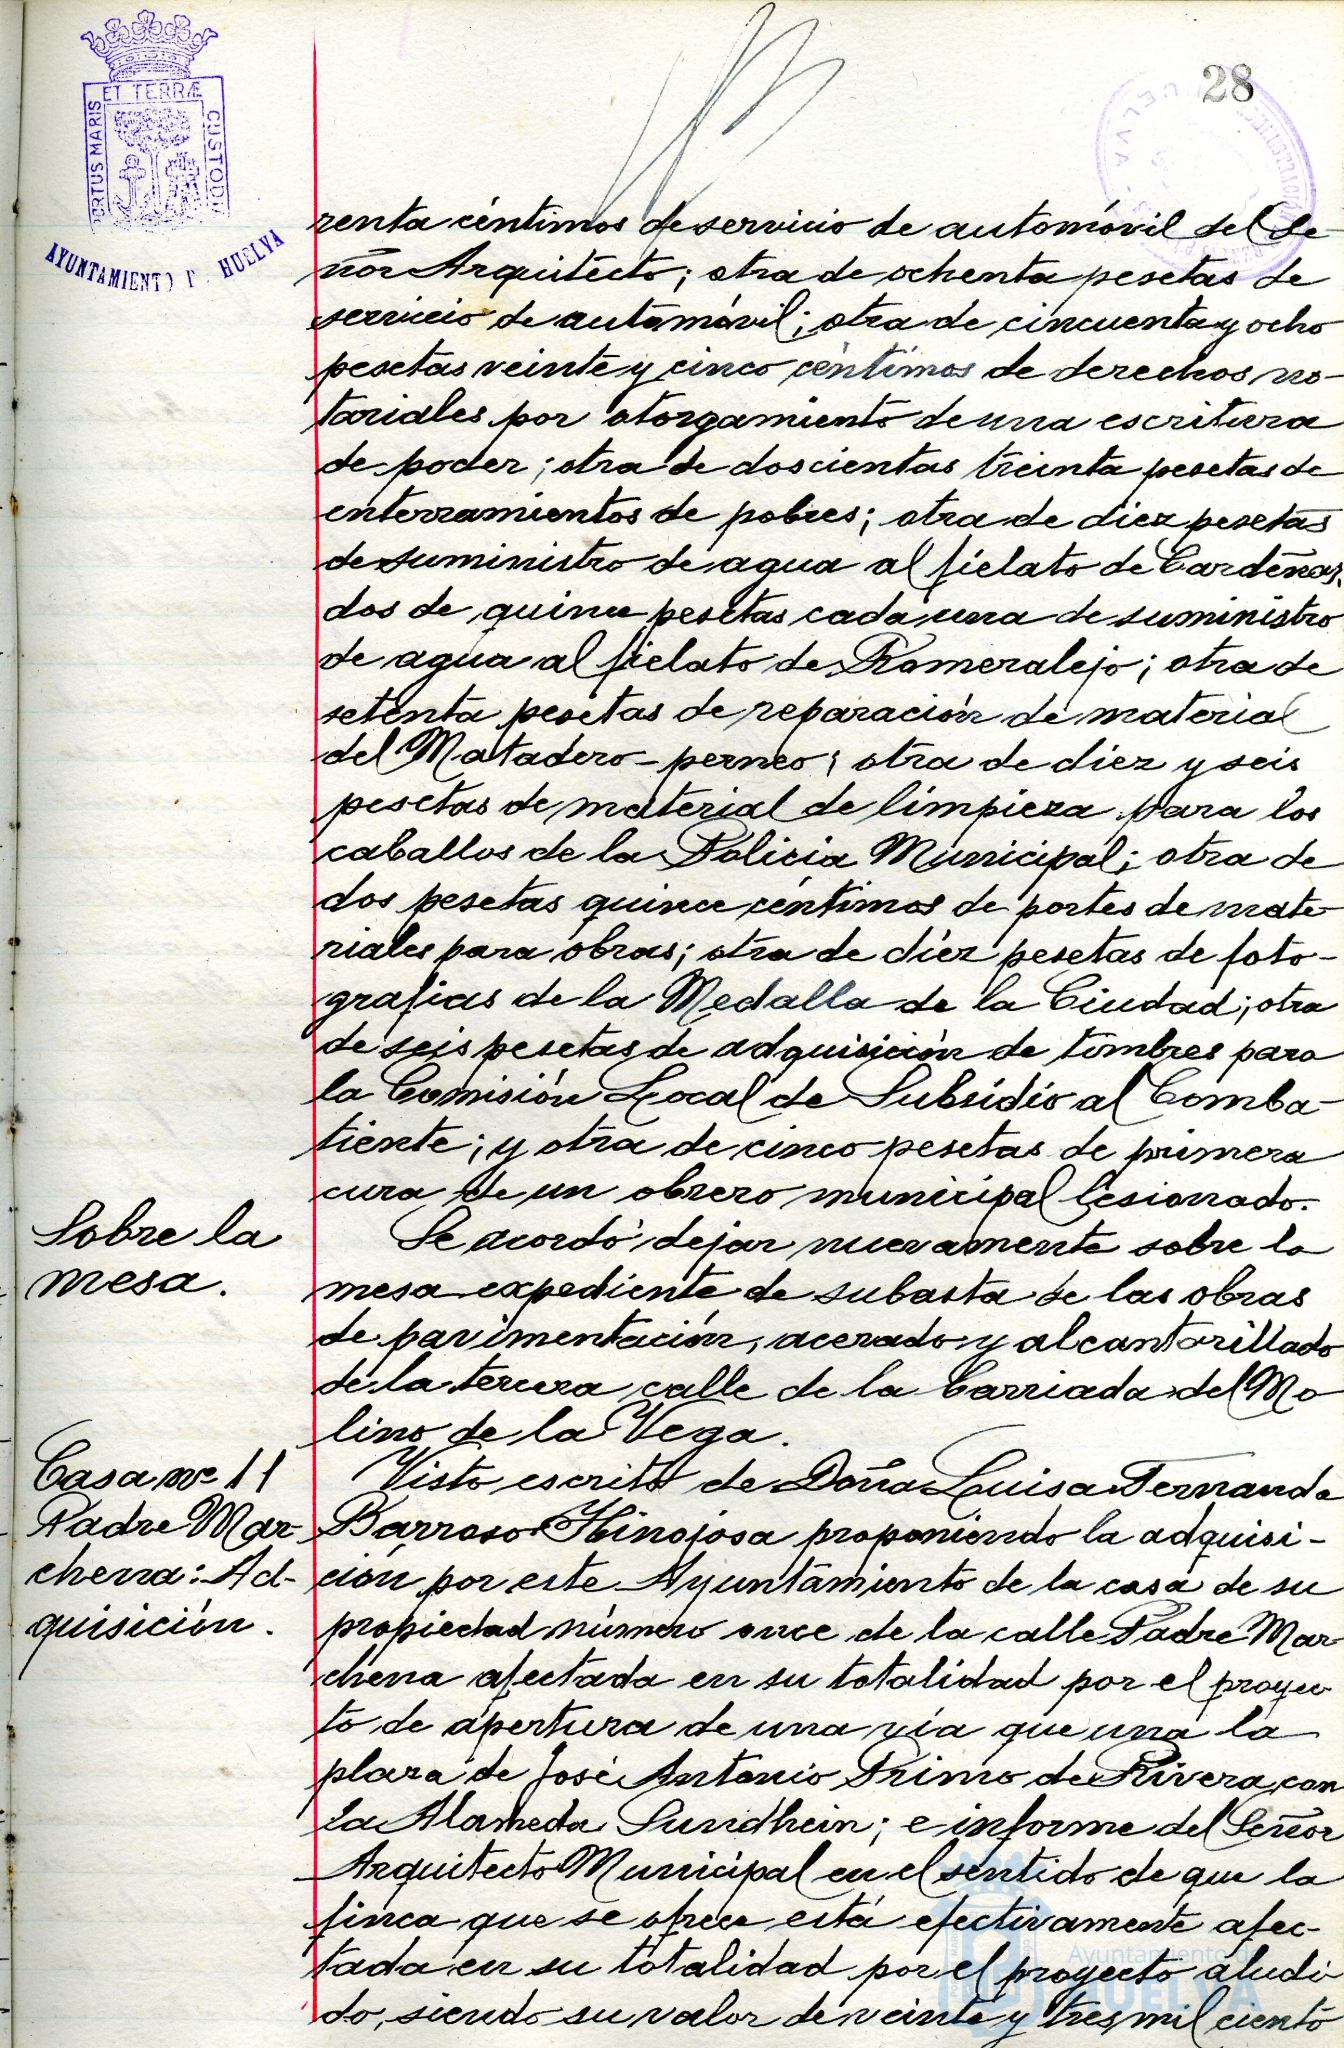 28
PORTUS MARIS
ET TERRÆ
CUSTODIA
AYUNTAMIENTO DE HUELVA
renta céntimos de servicio de automóvil del Se-
ñor Arquitecto; otra de ochenta pesetas de
servicio de automóvil; otra de cincuenta y ocho
pesetas veinte y cinco céntimos de derechos no-
tariales por otorgamiento de una escritura
de poder; otra de doscientas treinta pesetas de
enterramientos de pobres; otra de diez pesetas
de suministro de agua al fielato de Cardeñas;
dos de quince pesetas cada una de suministro
de agua al fielato de Romeralejo; otra de
setenta pesetas de reparación de material
del Matadero-perneo; otra de diez y seis
pesetas de material de limpieza para los
caballos de la Policia Municipal; otra de
dos pesetas quince céntimos de portes de mate-
riales para obras; otra de diez pesetas de foto-
grafias de la Medalla de la Ciudad; otra
de seis pesetas de adquisición de timbres para
la Comisión Local de Subsidio al Comba-
tiente; y otra de cinco pesetas de primera
cura de un obrero municipal lesionado.
Sobre la
mesa.
Se acordó dejar nuevamente sobre la
mesa expediente de subasta de las obras
de pavimentación, acerado y alcantarillado
de la tercera calle de la barriada del Mo-
lino de la Vega.
Casa nº 11
Padre Mar-
chena: Ad-
quisición.
Visto escrito de Doña Luisa Fernanda
Barroso Hinojosa proponiendo la adquisi-
ción por este Ayuntamiento de la casa de su
propiedad número once de la calle Padre Mar
chena afectada en su totalidad por el proyec
to de apertura de una vía que una la
plaza de José Antonio Primo de Rivera con
la Alameda Sundhein; e informe del Señor
Arquitecto Municipal en el sentido de que la
finca que se ofrece está efectivamente afec-
tada en su totalidad por el proyecto aludi
do, siendo su valor de veinte y tres mil ciento
Ayuntamiento de
HUELVA